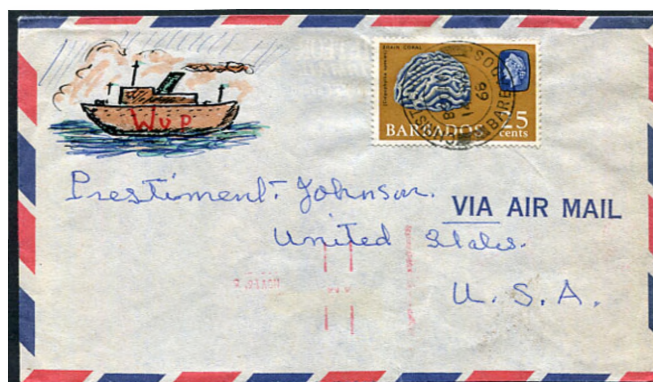 BRAIN CORAL
BARBADOS 25
cents
WVP
Prestiment. Johnson.
VIA AIR MAIL
United States.
U. S. A.